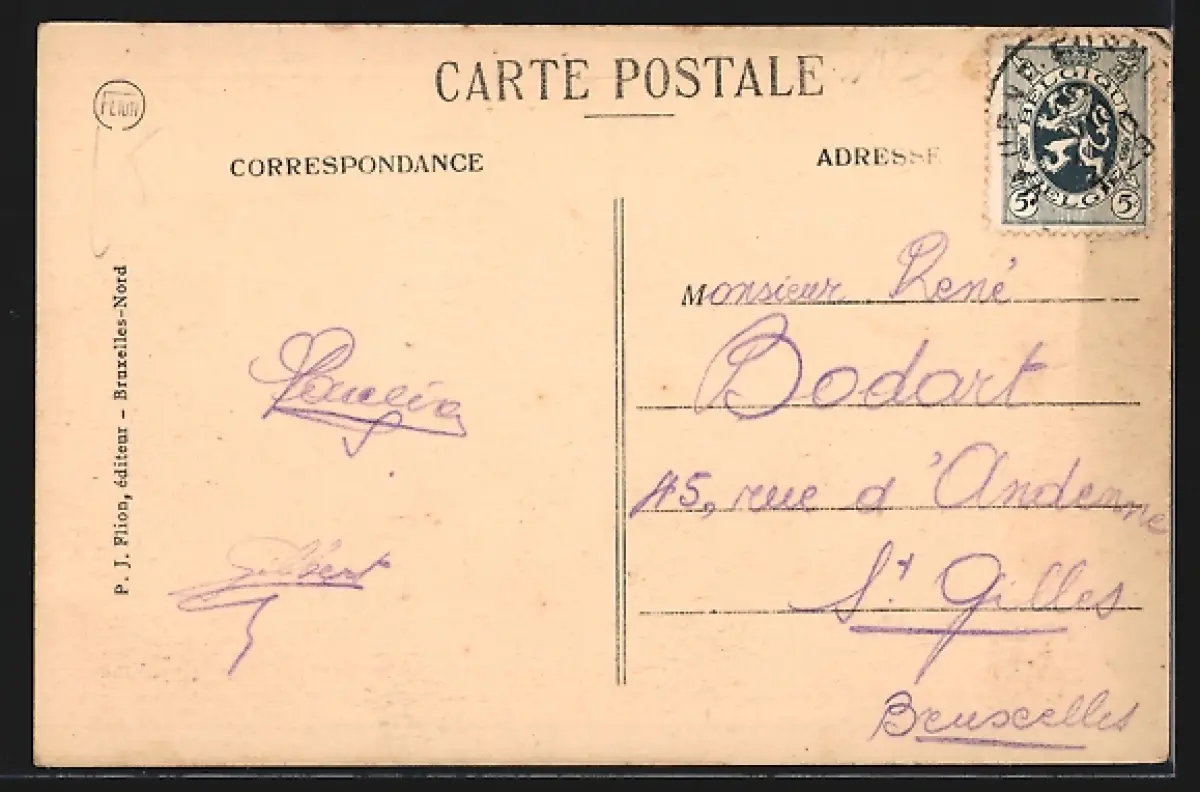 CARTE POSTALE
FLION
CORRESPONDANCE
ADRESSE
BELGIQUE
BELGIË
5c 5c
P. J. Flion, éditeur – Bruxelles-Nord
Gilbert
Monsieur René
Bodart
45, rue d'Andenne
St Gilles
Bruxelles